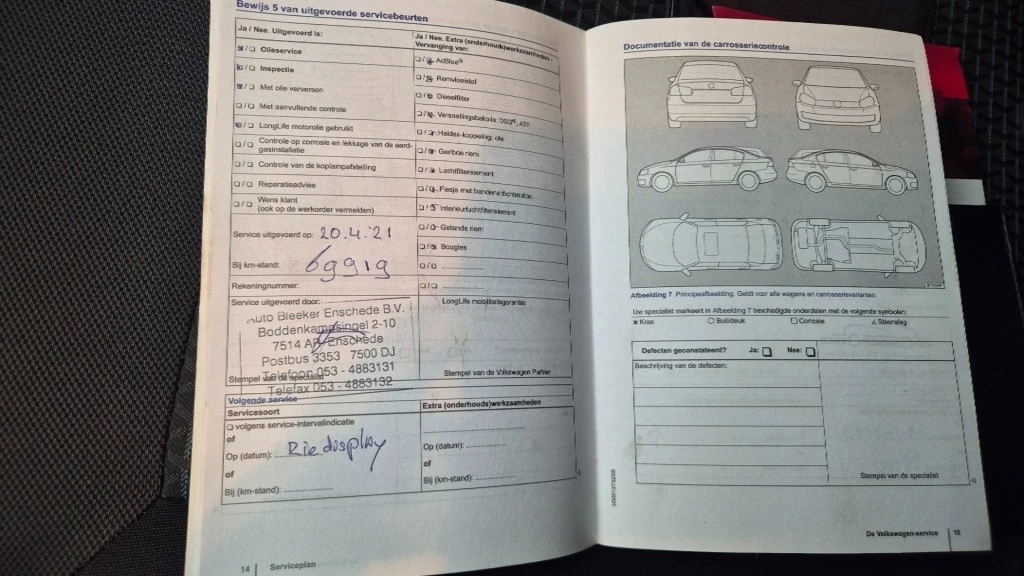 Bewijs 5 van uitgevoerde servicebeurten
Ja / Nee. Uitgevoerd is:
Olieservice
Inspectie
Met olie verversen
Met aanvullende controle
LongLife motorolie gebruikt
Controle op corrosie en lekkage van de aardgasinstallatie
Controle van de koplampafstelling
Reparatieadvies
Wens klant
(ook op de werkorder vermelden)
Service uitgevoerd op: 20.4.'21
Bij km-stand: 69919
Rekeningnummer:
Service uitgevoerd door:
Auto Bleeker Enschede B.V.
Boddenkampsingel 2-10
7514 AP Enschede
Postbus 3353 7500 DJ
Telefoon 053 - 4883131
Telefax 053 - 4883132
Stempel van de specialist
Ja / Nee. Extra (onderhouds)werkzaamheden -
Vervanging van:
AdBlue®
Remvloeistof
Dieselfilter
Versnellingsbakolie: DSG®, ATF
Haldex-koppeling: olie
Geribde riem
Luchtfilterelement
Flesje met bandenafdichtmiddel
Interieurluchtfilterelement
Getande riem
Bougies
LongLife mobiliteitsgarantie:
Stempel van de Volkswagen Partner
Volgende service
Servicesoort
volgens service-intervalindicatie
of
Op (datum):
of
Bij (km-stand):
Extra (onderhouds)werkzaamheden
Op (datum):
of
Bij (km-stand):
14 Serviceplan
Documentatie van de carrosseriecontrole
Afbeelding 7 Principeafbeelding. Geldt voor alle wagens en carrosserievarianten
Uw specialist markeert in Afbeelding 7 beschadigde onderdelen met de volgende symbolen:
Kras Buil/deuk Corrosie Steenslag
Defecten geconstateerd? Ja: Nee:
Beschrijving van de defecten:
Stempel van de specialist
De Volkswagen-service 15